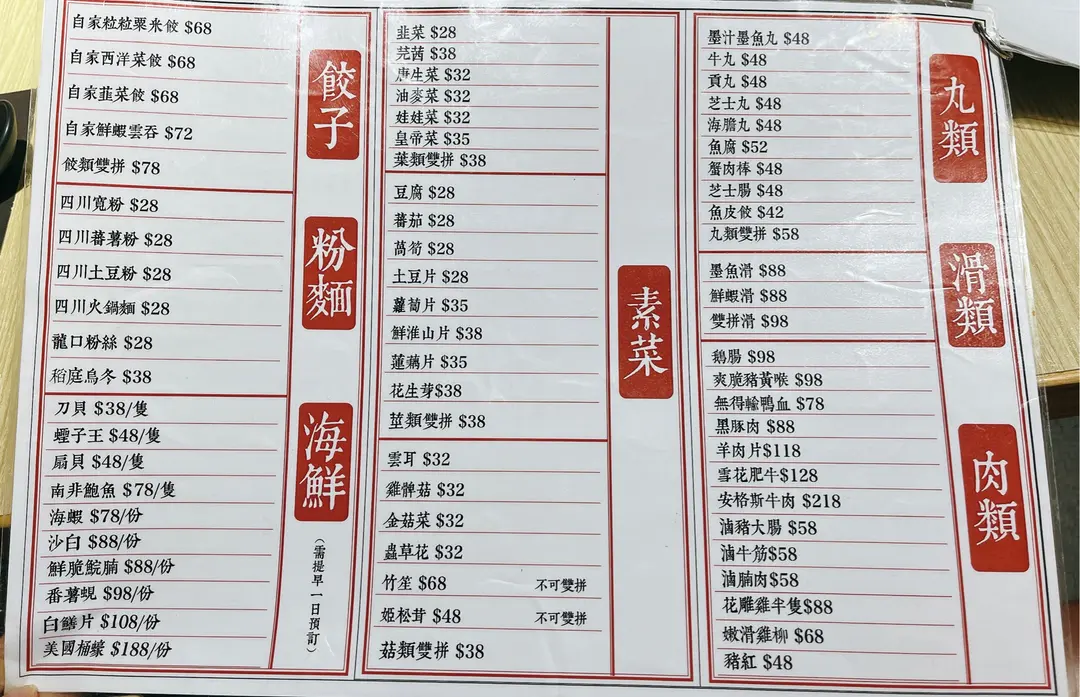 自家粒粒粟米餃 $68
自家西洋菜餃 $68
自家韮菜餃 $68
自家鮮蝦雲吞 $72
餃類雙拼 $78
餃子
四川寬粉 $28
四川蕃薯粉 $28
四川土豆粉 $28
四川火鍋麵 $28
龍口粉絲 $28
稻庭烏冬 $38
粉麵
刀貝 $38/隻
蟶子王 $48/隻
扇貝 $48/隻
南非鮑魚 $78/隻
海蝦 $78/份
沙白 $88/份
鮮脆鯇腩 $88/份
番薯蜆 $98/份
白鱔片 $108/份
美國桶蠔 $188/份
海鮮
（需提早一日預訂）
韮菜 $28
芫茜 $38
唐生菜 $32
油麥菜 $32
娃娃菜 $32
皇帝菜 $35
葉類雙拼 $38
豆腐 $28
蕃茄 $28
萵筍 $28
土豆片 $28
蘿蔔片 $35
鮮淮山片 $38
蓮藕片 $35
花生芽$38
莖類雙拼 $38
雲耳 $32
雞髀菇 $32
金菇菜 $32
蟲草花 $32
竹笙 $68 不可雙拼
姬松茸 $48 不可雙拼
菇類雙拼 $38
素菜
墨汁墨魚丸 $48
牛丸 $48
貢丸 $48
芝士丸 $48
海膽丸 $48
魚腐 $52
蟹肉棒 $48
芝士腸 $48
魚皮餃 $42
丸類雙拼 $58
丸類
墨魚滑 $88
鮮蝦滑 $88
雙拼滑 $98
滑類
鵝腸 $98
爽脆豬黃喉 $98
無得輸鴨血 $78
黑豚肉 $88
羊肉片$118
雪花肥牛$128
安格斯牛肉 $218
滷豬大腸 $58
滷牛筋$58
滷腩肉$58
花雕雞半隻$88
嫩滑雞柳 $68
豬紅 $48
肉類